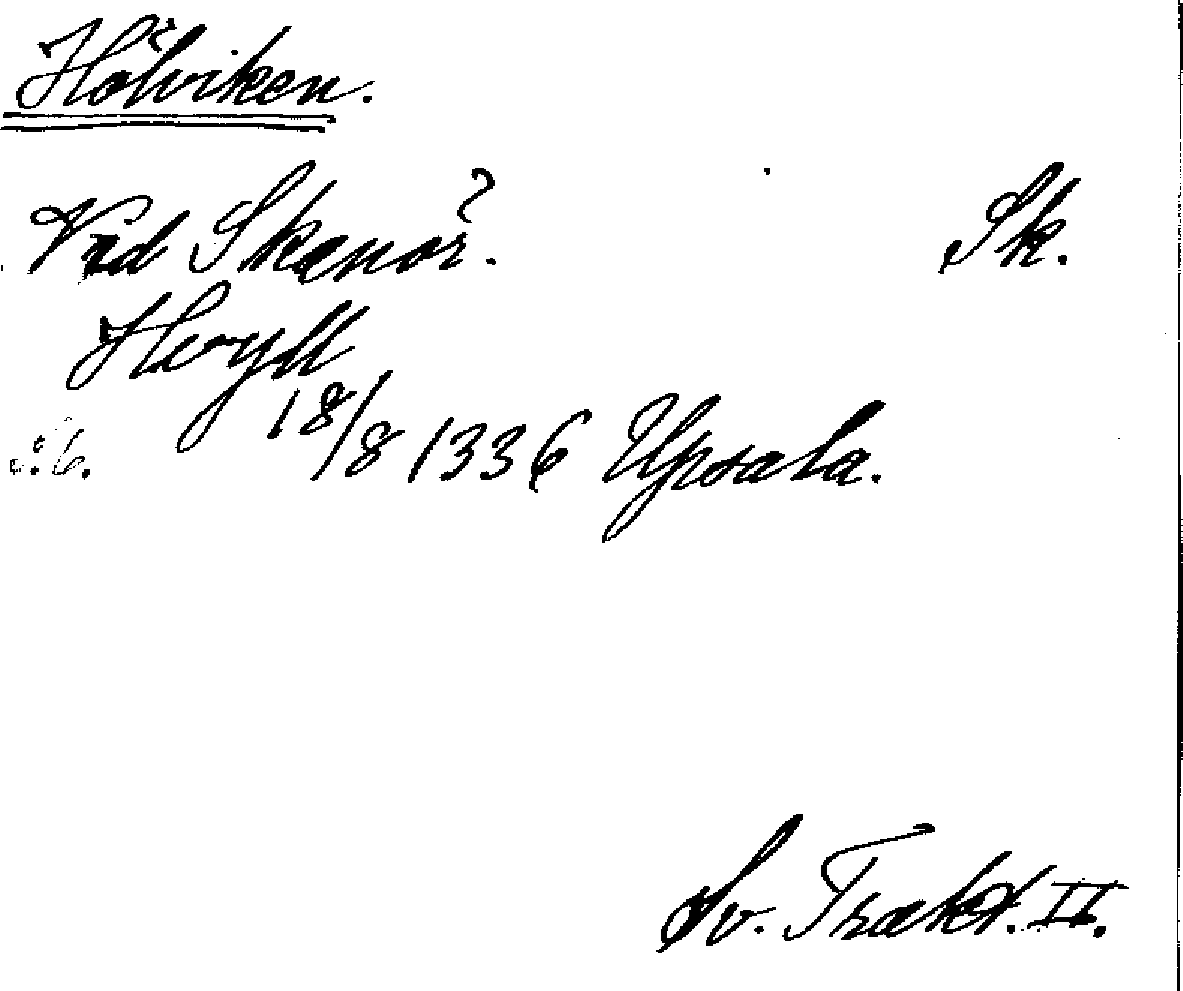 Hölviken.
Vid Skanör. Sk.
18/8 1336 Upsala.
Sv. Trakt. II.